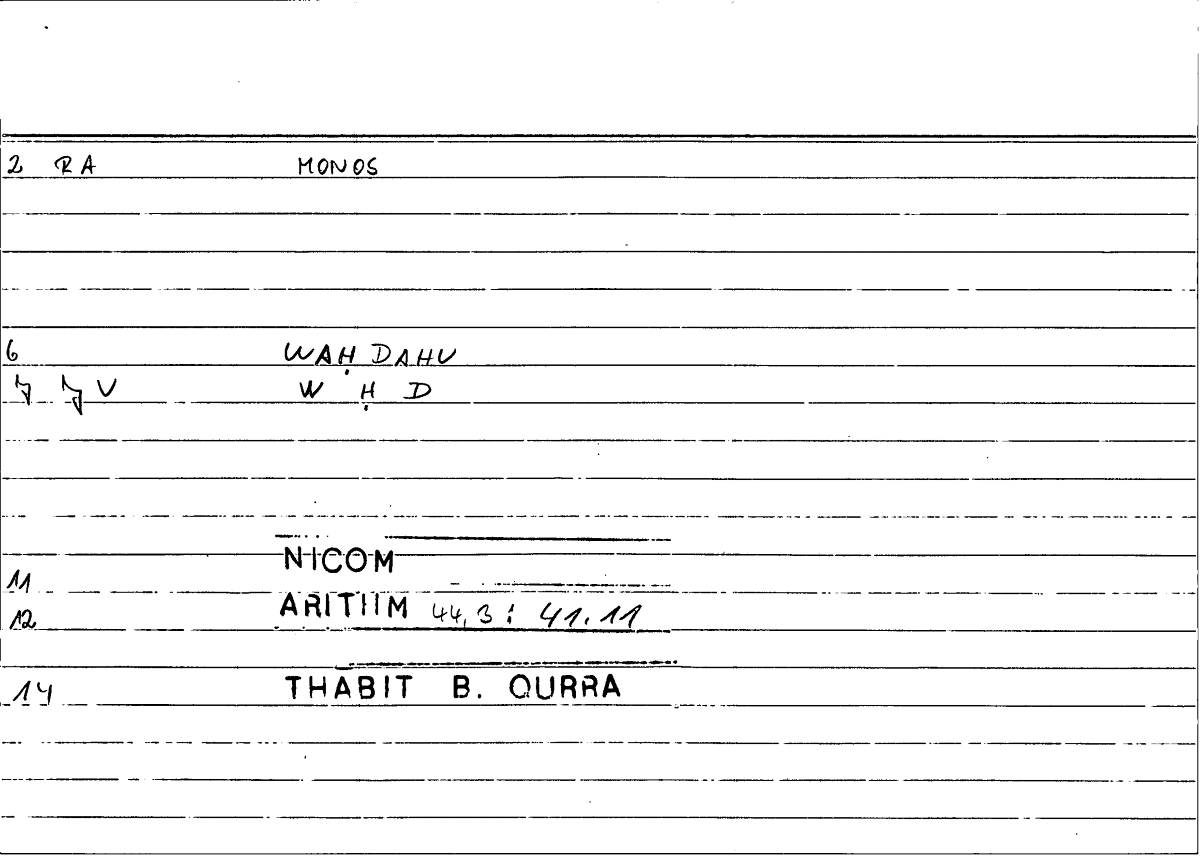 2 RA MONOS
6 WAḤDAHU
7 7 V W Ḥ D
NICOM
11
12 ARITHM 44,3 : 41.11
14 THABIT B. QURRA